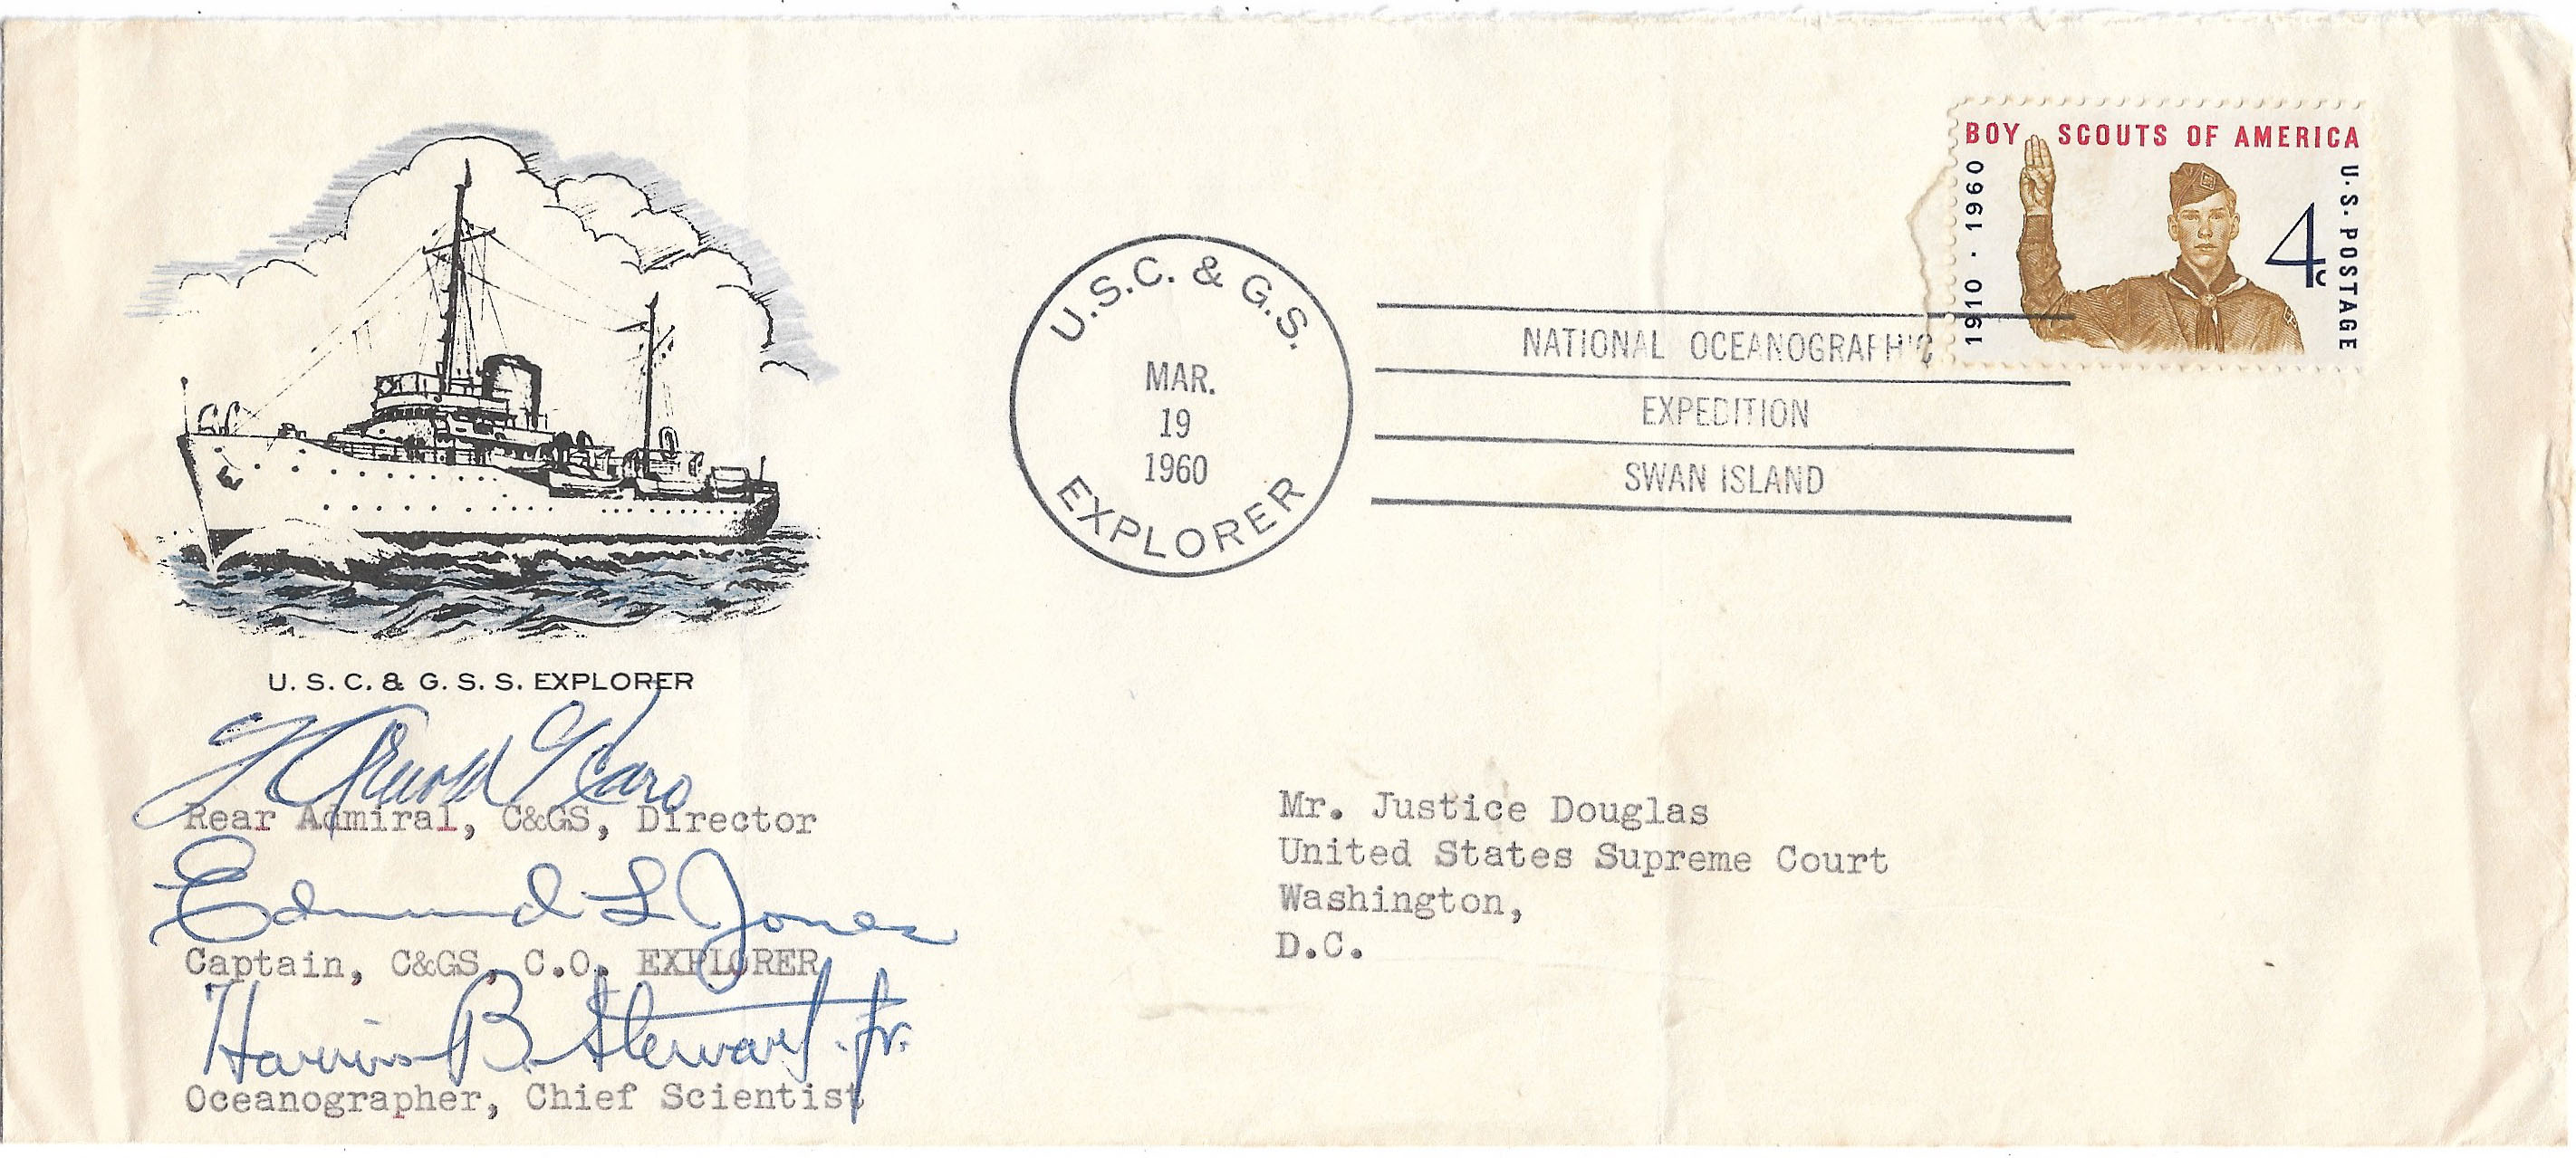 BOY SCOUTS OF AMERICA
1910 · 1960
4c
U.S. POSTAGE
U.S.C. & G.S.
MAR.
19
1960
EXPLORER
NATIONAL OCEANOGRAPHIC
EXPEDITION
SWAN ISLAND
U. S. C. & G. S. S. EXPLORER
H Arnold Karo
Rear Admiral, C&GS, Director
Edmund L Jones
Captain, C&GS, C.O. EXPLORER
Harris B. Stewart, Jr.
Oceanographer, Chief Scientist
Mr. Justice Douglas
United States Supreme Court
Washington,
D.C.